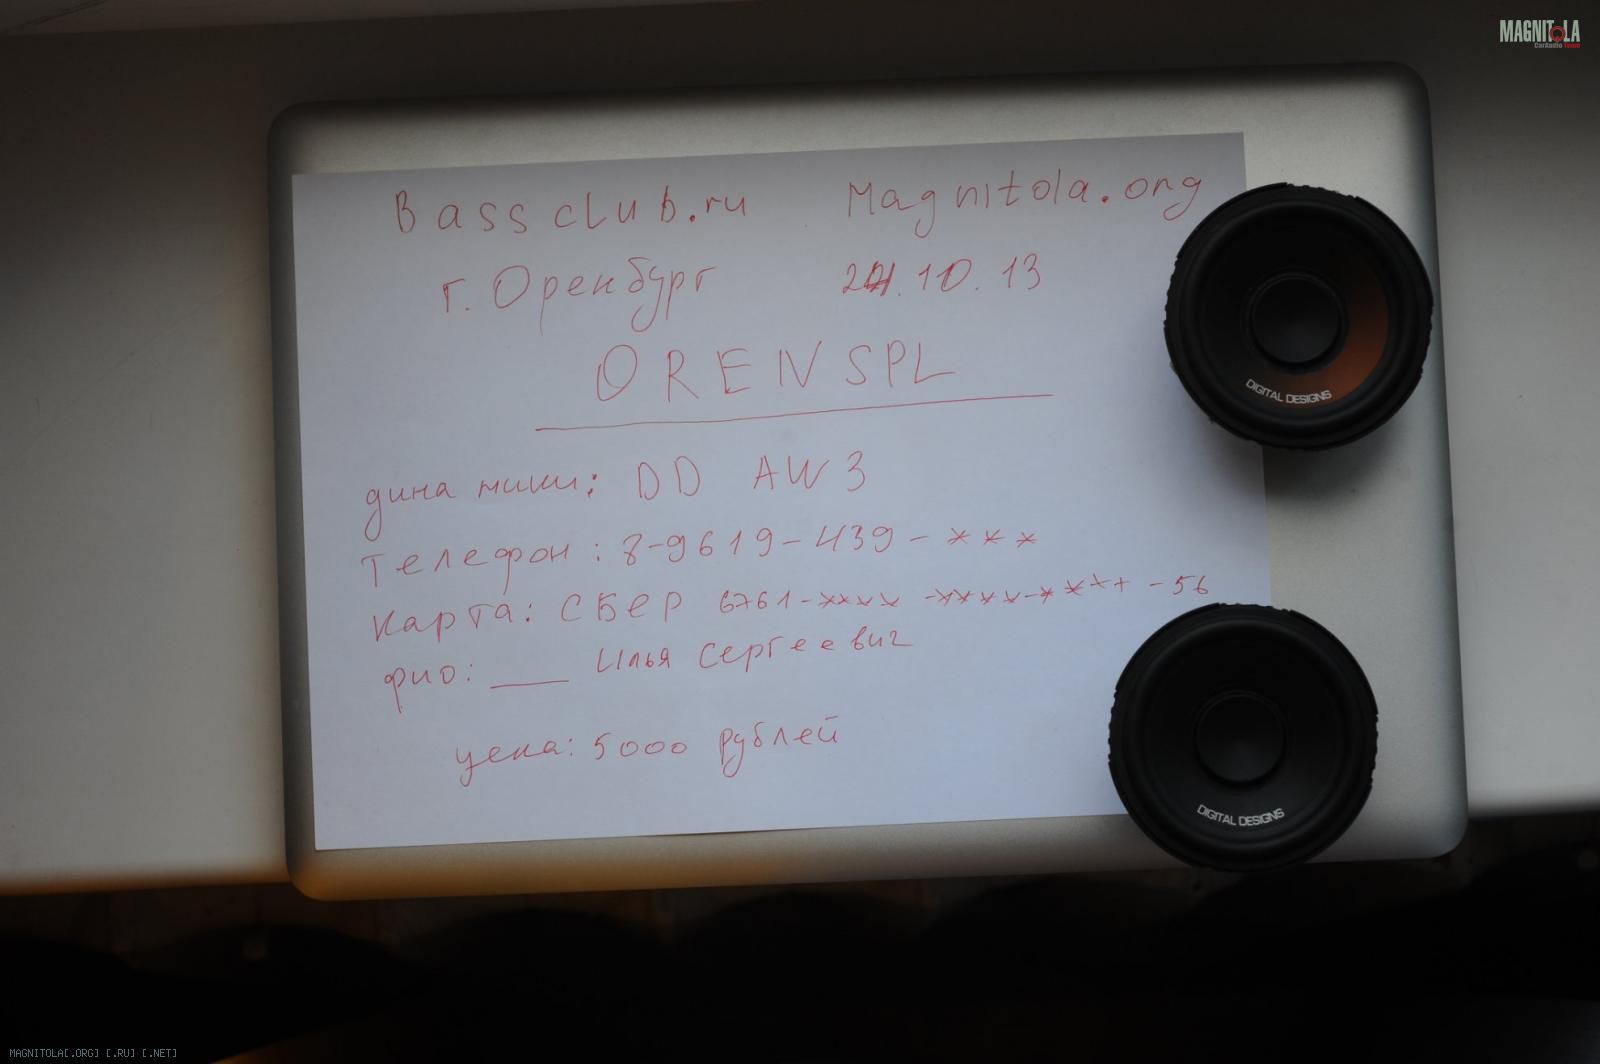 MAGNITOLA
CarAudio Team
Bassclub.ru Magnitola.org
г. Оренбург 24.10.13
ORENSPL
динамики: DD AW3
Телефон: 8-9619-439-***
Карта: СБЕР 6761-****-****-****-56
фио: ___ Илья Сергеевич
цена: 5000 рублей
DIGITAL DESIGNS
DIGITAL DESIGNS
MAGNITOLA[.ORG] [.RU] [.NET]